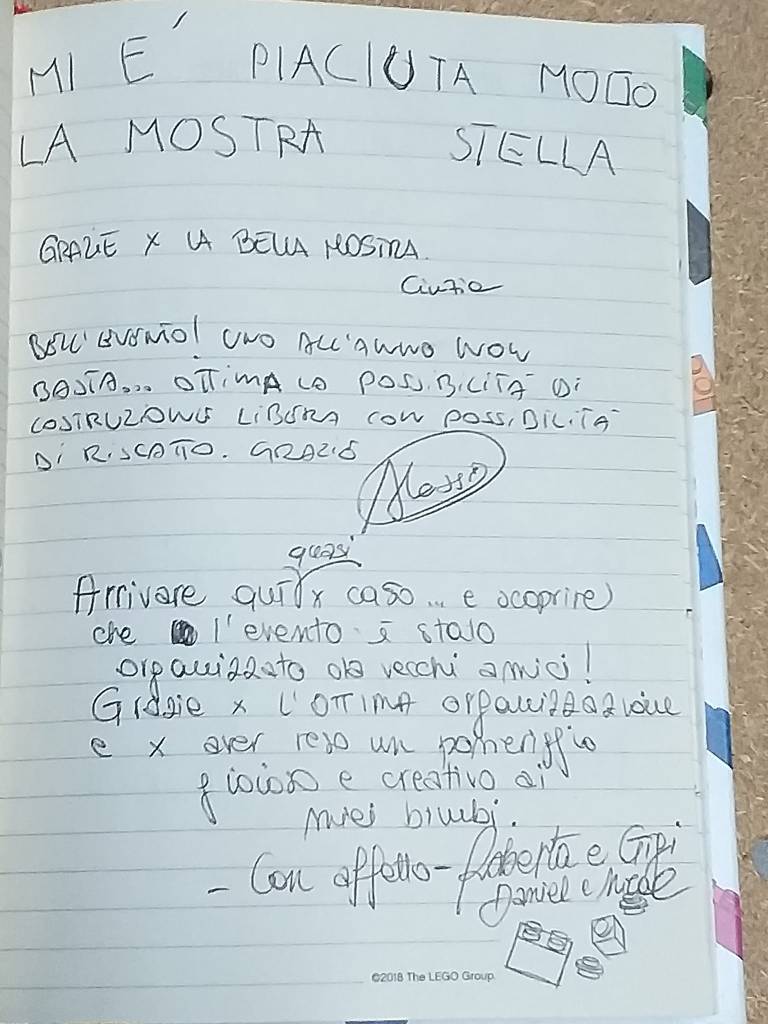 MI E' PIACIUTA MOLTO
LA MOSTRA STELLA
GRAZIE X LA BELLA MOSTRA.
Cinzia
BELL'EVENTO! UNO ALL'ANNO NON
BASTA... OTTIMA LA POSSIBILITÀ DI
COSTRUZIONE LIBERA CON POSSIBILITÀ
DI RISCATTO. GRAZIE
Alessio
quasi
Arrivare qui x caso... e scoprire
che l'evento è stato
organizzato da vecchi amici!
Grazie x L'OTTIMA organizzazione
e x aver reso un pomeriggio
gioioso e creativo ai
miei bimbi.
- Con affetto - Roberta e Gigi
Daniel e Nicole
©2018 The LEGO Group.